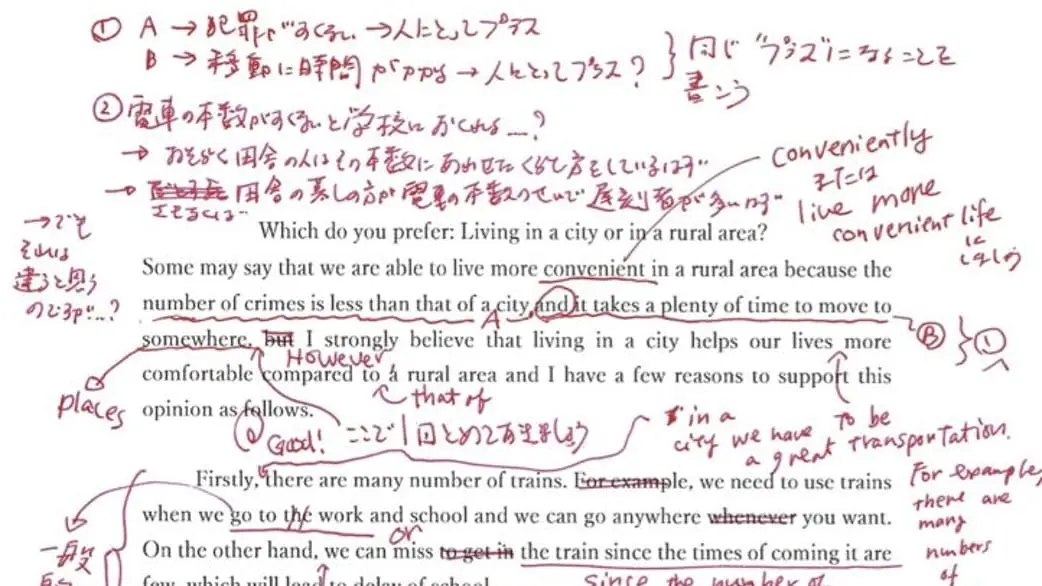 ① A → 犯罪がすくない → 人にとってプラス
B → 移動に時間がかかる → 人にとってプラス?
同じ"プラス"になることを
書こう
② 電車の本数がすくないと学校におくれる…?
→ おそらく田舎の人はその本数にあわせたくらし方をしているはず
→ 田舎の暮しの方が電車の本数のせいで遅刻者が多いはず
conveniently
または
live more
convenient life
にしよう
→でも
それは
違うと思う
のですが…?
Which do you prefer: Living in a city or in a rural area?
Some may say that we are able to live more convenient in a rural area because the
number of crimes is less than that of a city, and it takes a plenty of time to move to
A
B
①
somewhere. but I strongly believe that living in a city helps our lives more
However
comfortable compared to a rural area and I have a few reasons to support this
places
that of
to be
opinion as follows.
Good! ここで1回とめてあきましょう
in a
city we have
a great transportation.
Firstly, there are many number of trains. For example, we need to use trains
For example,
there are
many
numbers
of
when we go to the work and school and we can go anywhere whenever you want.
or
一般
On the other hand, we can miss to get in the train since the times of coming it are
since the number of
few, which will lead to delay of school.